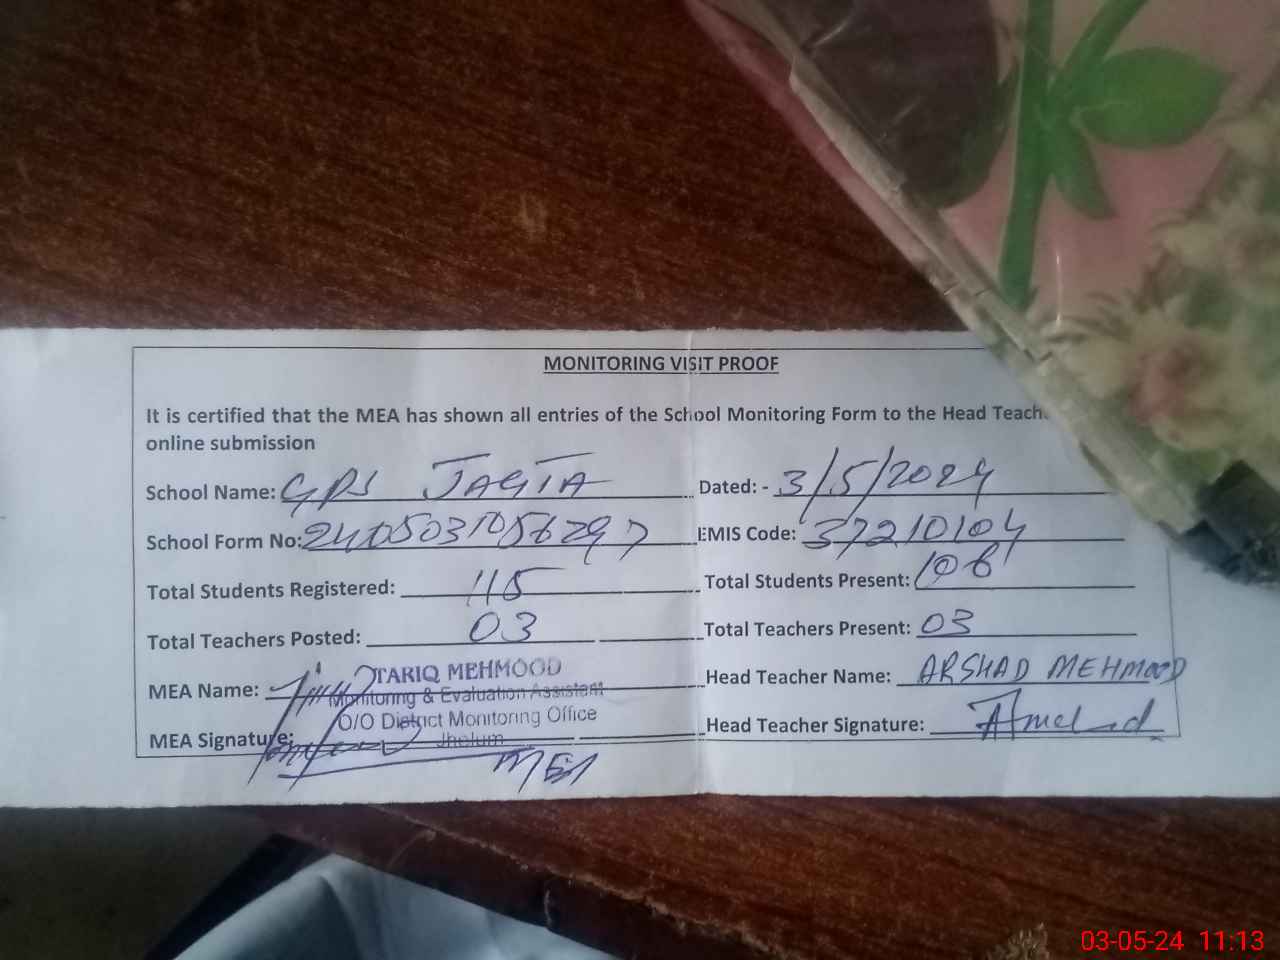 MONITORING VISIT PROOF
It is certified that the MEA has shown all entries of the School Monitoring Form to the Head Teach
online submission
School Name: GPS JAGTA Dated: - 3/5/2024
School Form No: EMIS Code: 37210104
Total Students Registered: 115 Total Students Present: 106
Total Teachers Posted: 03 Total Teachers Present: 03
TARIQ MEHMOOD
MEA Name: Monitoring & Evaluation Assistent Head Teacher Name: ARSHAD MEHMOOD
O/O District Monitoring Office
MEA Signature: Jhelum Head Teacher Signature:
MEA
03-05-24 11:13